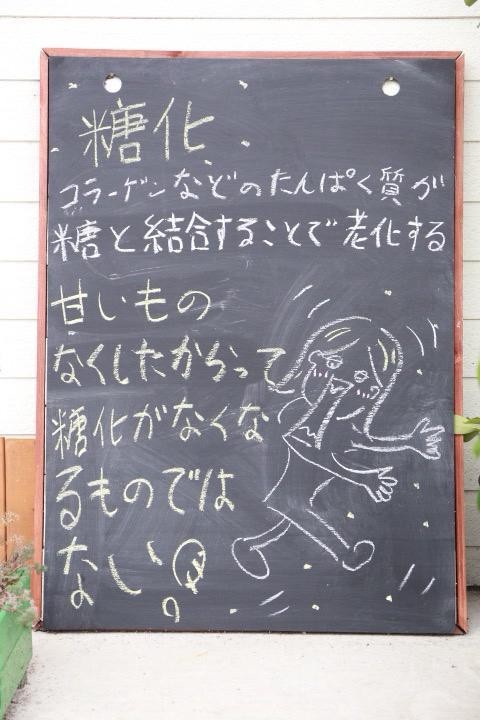 糖化
コラーゲンなどのたんぱく質が
糖と結合することで老化する
甘いもの
なくしたからって
糖化がなくな
るものでは
ない!